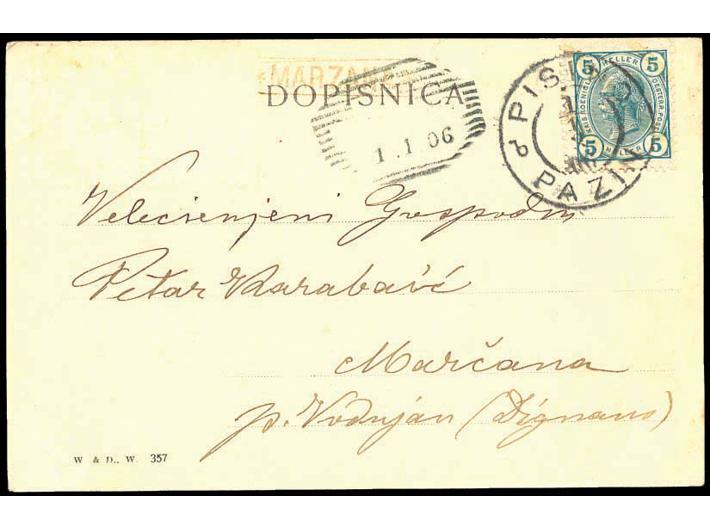 MARZANA
DOPISNICA
1.1 06
PISINO
PAZIN
5 HELLER 5
5 HELLER 5
Velecienjeni Gospodin
Petar Karabaić
Marčana
p. Vodnjan (Dignano)
W. & D., W. 357